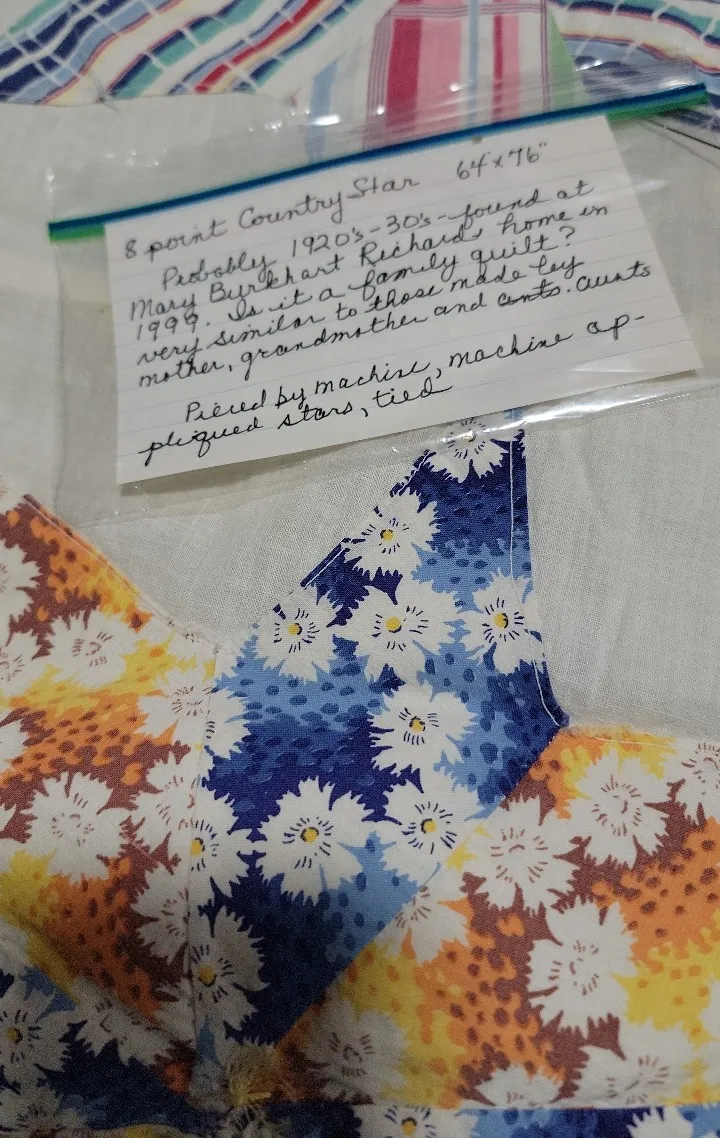 8 point Country Star 64"x76"
Probably 1920's-30's-found at
Mary Burkhart Richards home in
1999. Is it a family quilt?
very similar to those made by
mother, grandmother and ants. aunts
Pieced by machine, machine ap-
pliqued stars, tied